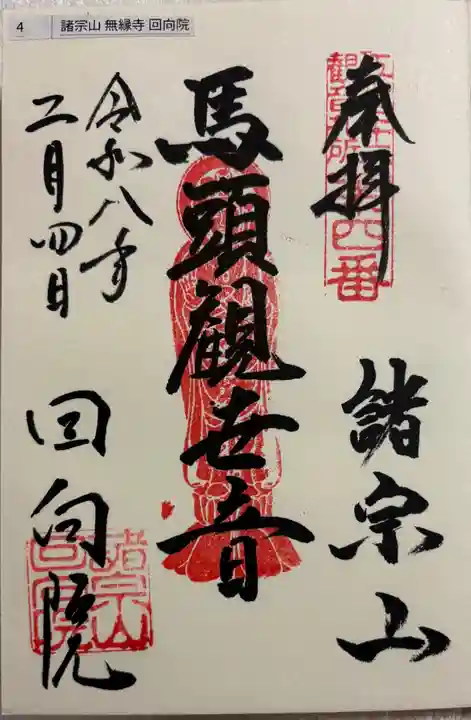 4 諸宗山 無縁寺 回向院
奉拝
四番
諸宗山
馬頭觀世音
令和八年
二月四日
回向院
諸宗山
回向院